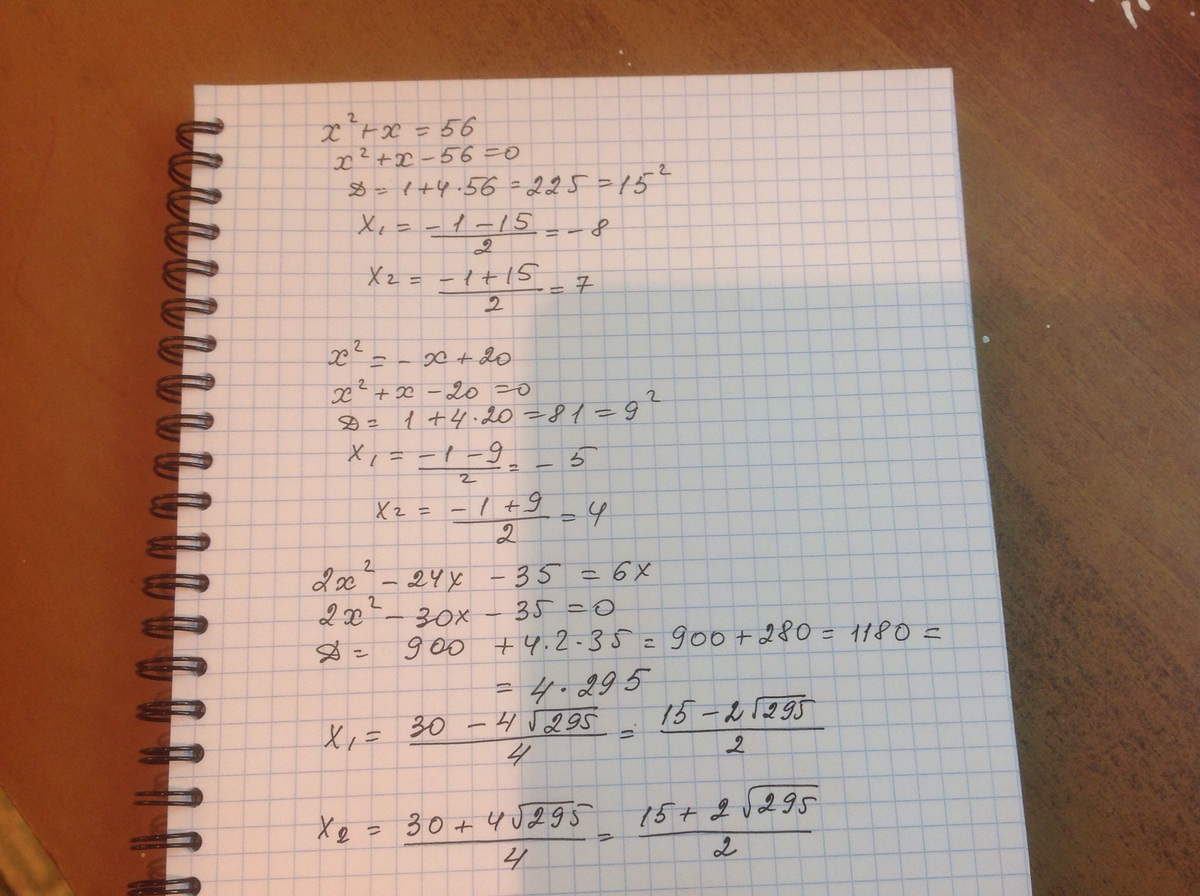 x² + x = 56
x² + x - 56 = 0
D = 1 + 4·56 = 225 = 15²
x₁ = (-1 - 15)/2 = -8
x₂ = (-1 + 15)/2 = 7
x² = -x + 20
x² + x - 20 = 0
D = 1 + 4·20 = 81 = 9²
x₁ = (-1 - 9)/2 = -5
x₂ = (-1 + 9)/2 = 4
2x² - 24x - 35 = 6x
2x² - 30x - 35 = 0
D = 900 + 4·2·35 = 900 + 280 = 1180 =
= 4·295
x₁ = (30 - 4√295)/4 = (15 - 2√295)/2
x₂ = (30 + 4√295)/4 = (15 + 2√295)/2